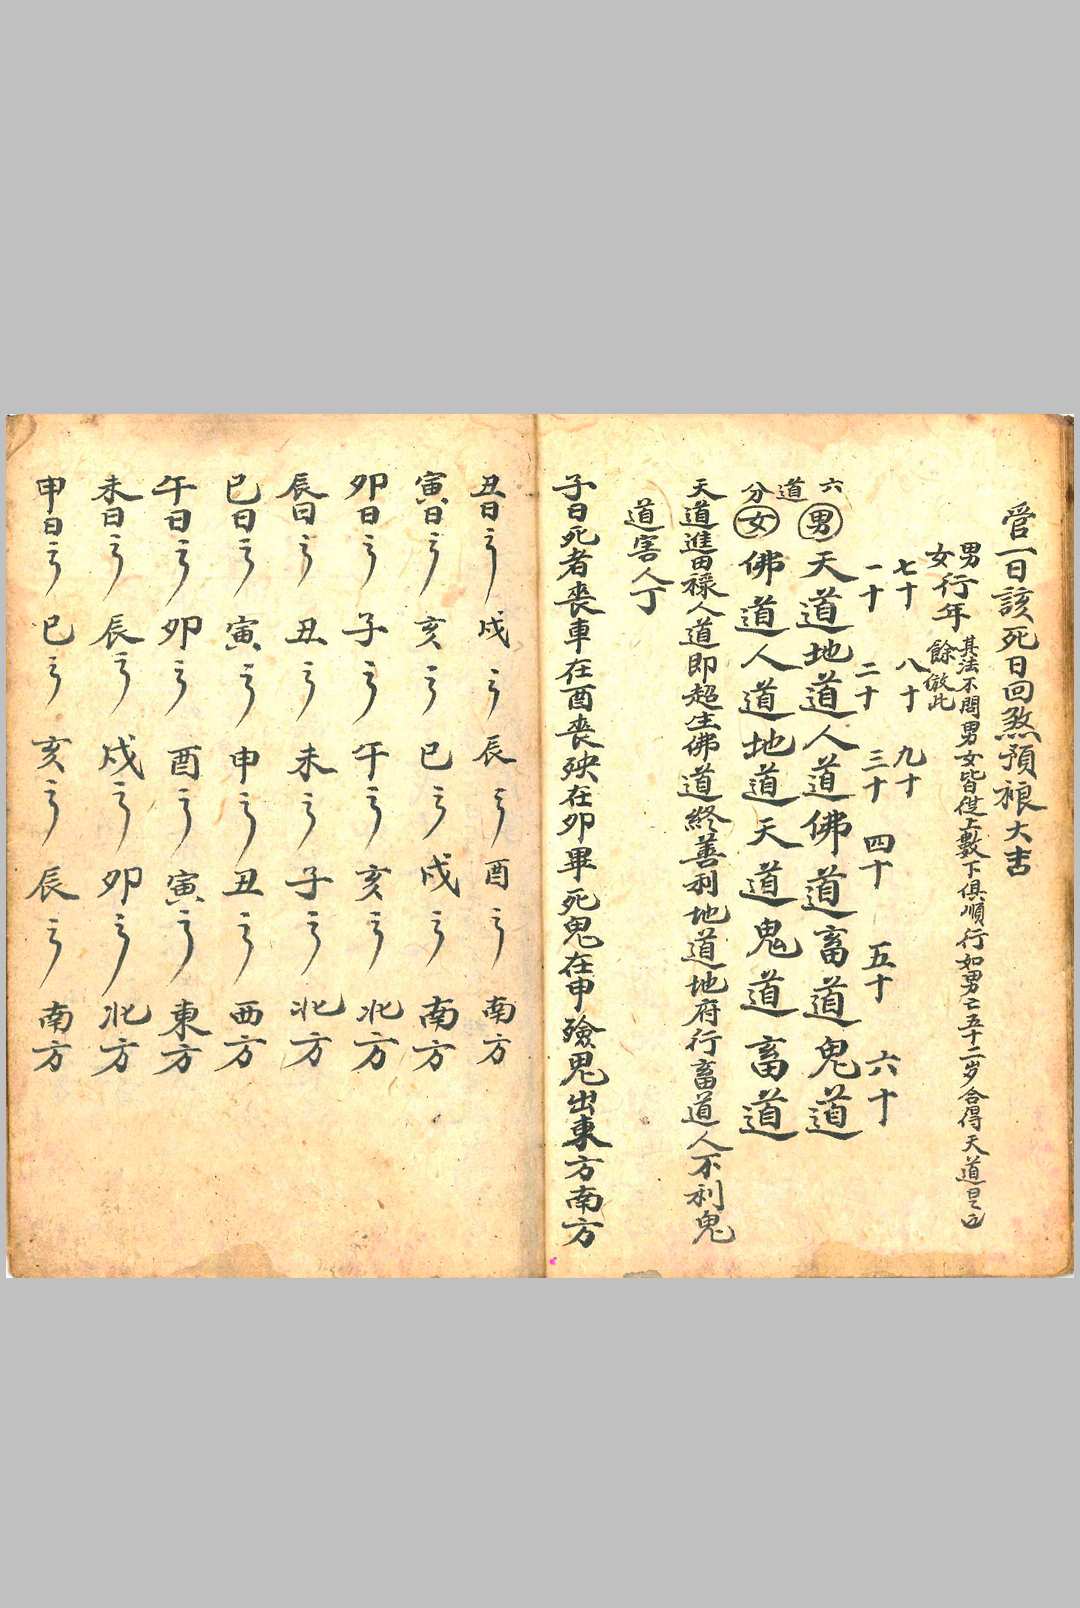 管一日該死日回煞預禳大吉
男
女行年
其法不問男女皆從上數下俱順行如男亡五十二岁合得天道是也
餘倣此
七十 八十 九十
一十 二十 三十 四十 五十 六十
六道分
男 天道地道人道佛道畜道鬼道
女 佛道人道地道天道鬼道畜道
天道進田禄人道即超生佛道終善利地道地府行畜道人不利鬼
道害人丁
子日死者喪車在酉喪殃在卯畢死鬼在申殮鬼出東方南方
丑日 戌 辰 酉 南方
寅日 亥 巳 戌 南方
卯日 子 午 亥 北方
辰日 丑 未 子 北方
巳日 寅 申 丑 西方
午日 卯 酉 寅 東方
未日 辰 戌 卯 北方
申日 巳 亥 辰 南方